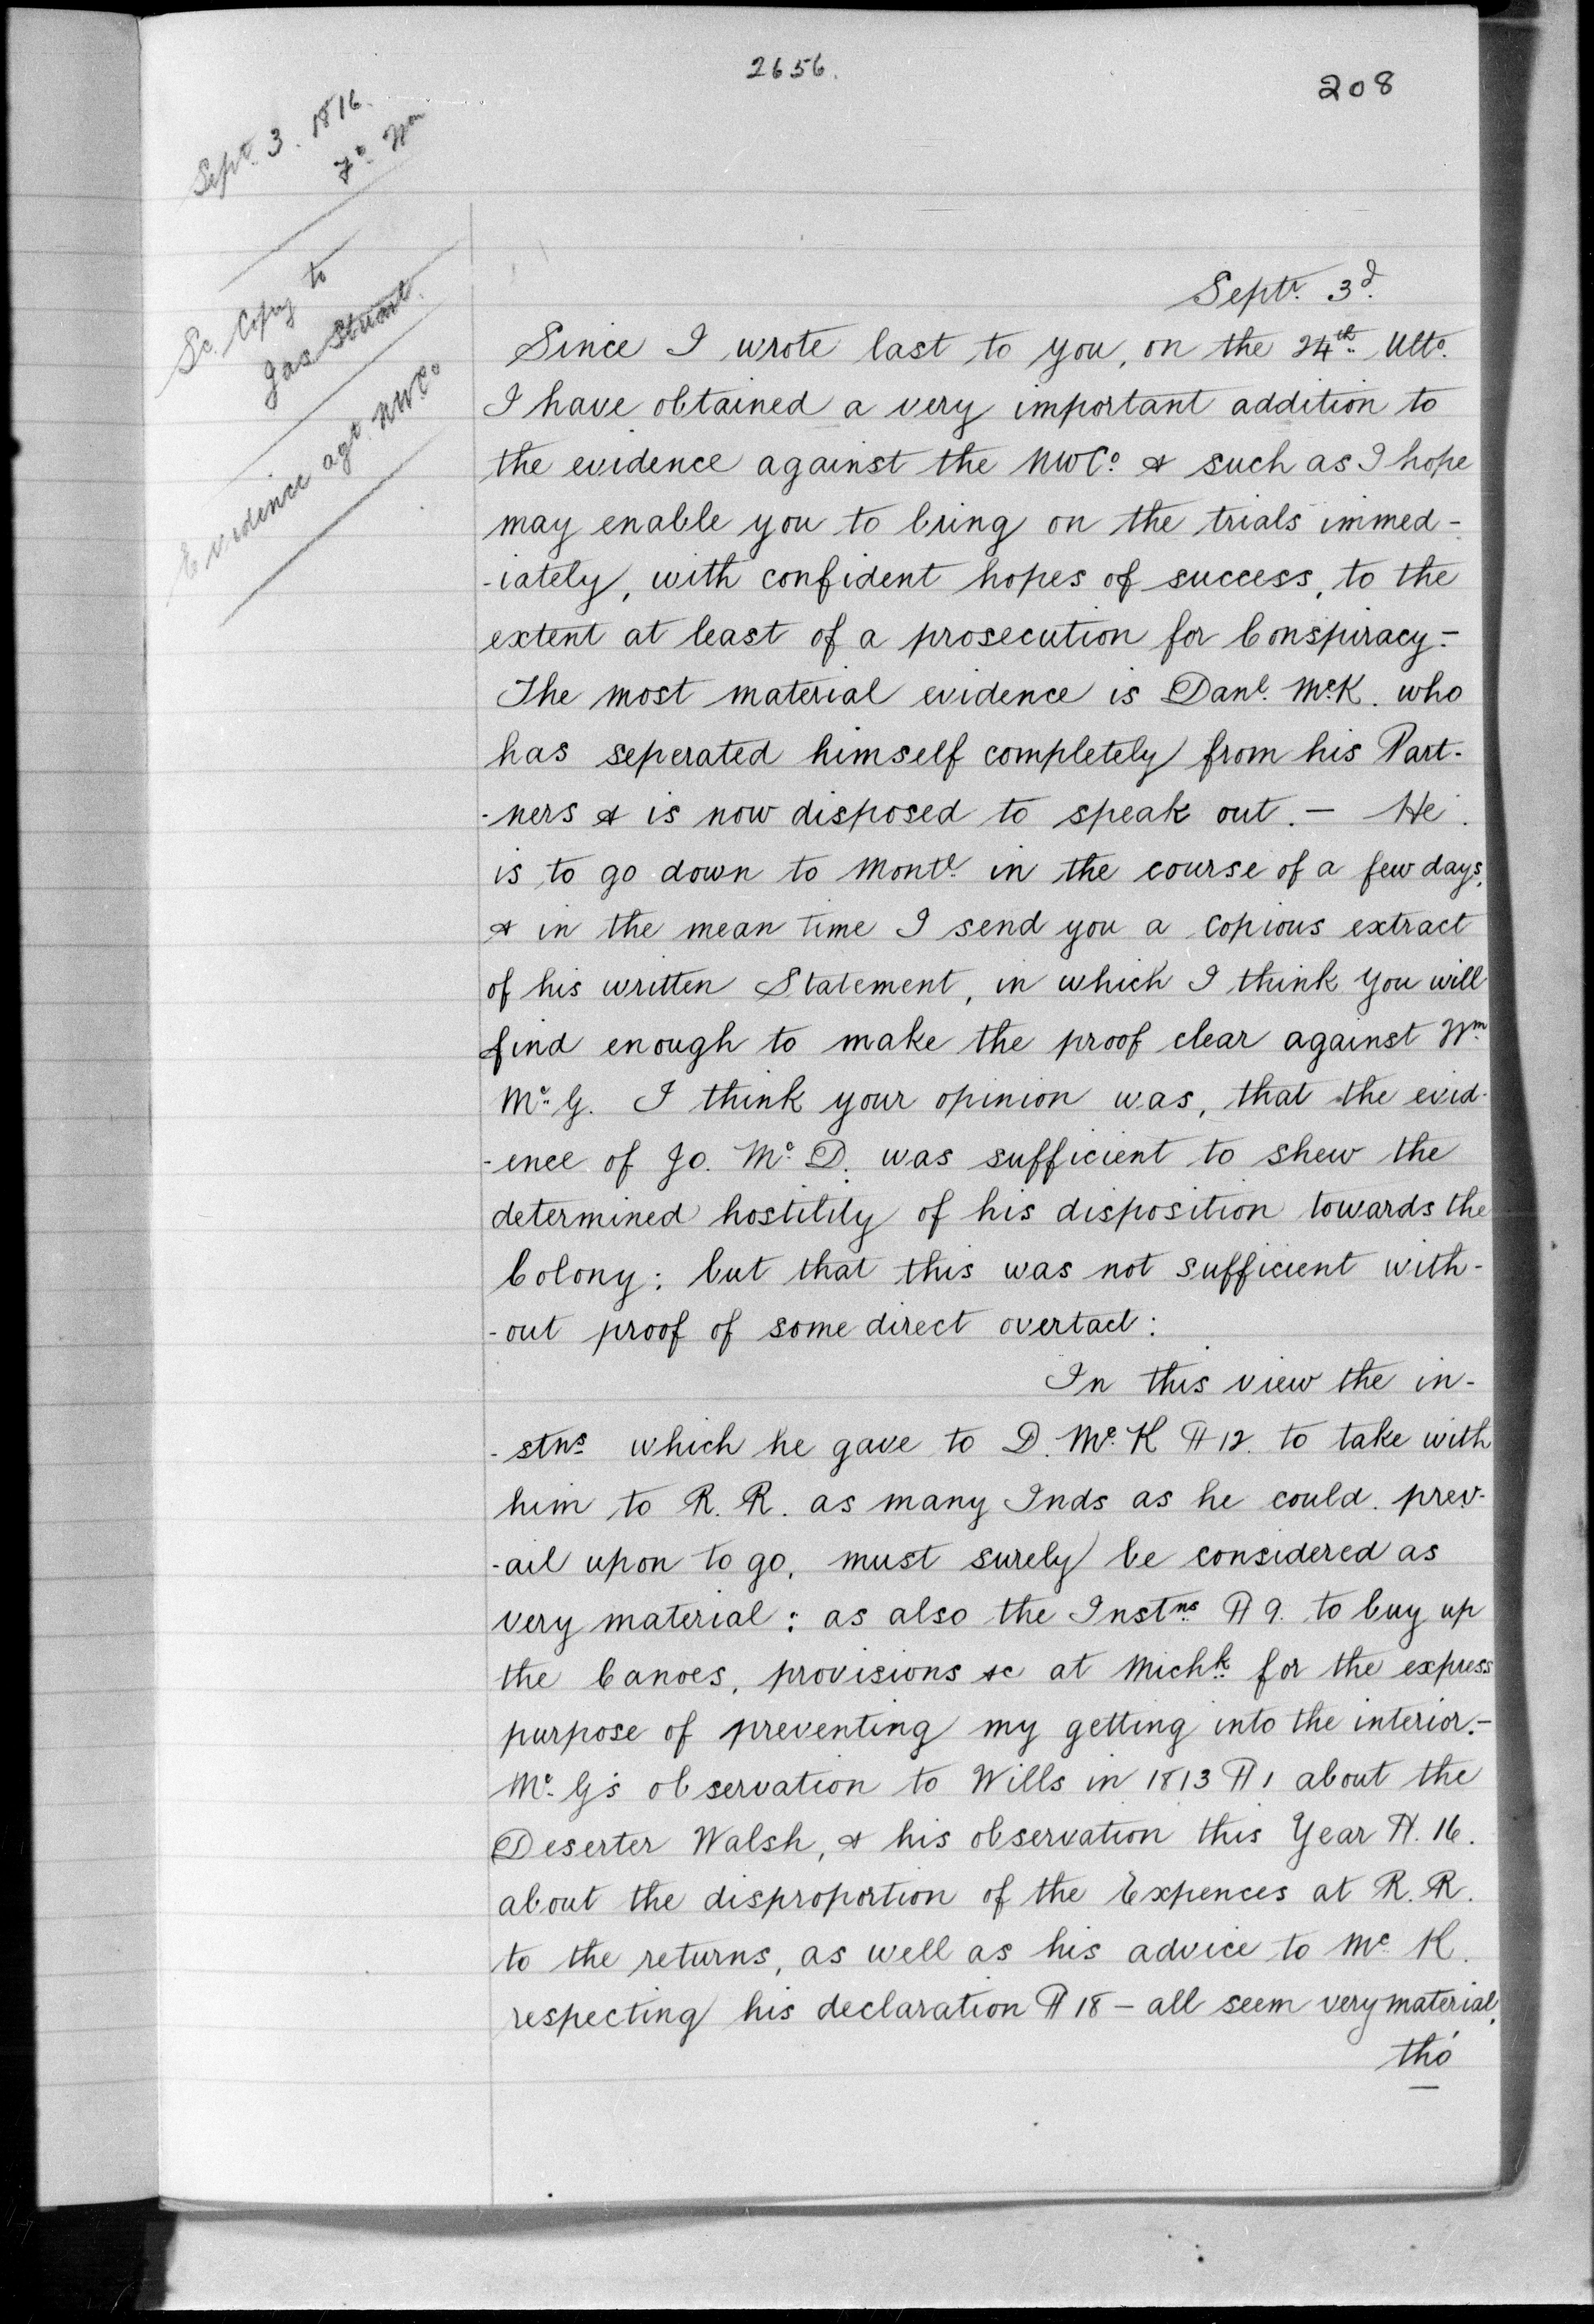 2656.
208
Sept. 3. 1816.
Fo. Wm
Sc. Copy to
Jas Stuart.
Evidence agt. NWCo
Septr. 3d.
Since I wrote last to you, on the 24th. Ulto.
I have obtained a very important addition to
the evidence against the NWCo. & such as I hope
may enable you to bring on the trials immed-
-iately, with confident hopes of success, to the
extent at least of a prosecution for Conspiracy.-
The most material evidence is Danl. McK. who
has seperated himself completely from his Part-
-ners & is now disposed to speak out. — He
is to go down to Montl. in the course of a few days,
& in the mean time I send you a Copious extract
of his written Statement, in which I think you will
find enough to make the proof clear against Wm
Mc. G. I think your opinion was, that the evid-
-ence of Jo. Mc. D. was sufficient to shew the
determined hostility of his disposition towards the
Colony: but that this was not sufficient with-
-out proof of some direct overtact:
In this view the in-
-stns. which he gave to D. Mc. K ¶ 12. to take with
him to R. R. as many Inds as he could prev-
-ail upon to go, must surely be considered as
very material: as also the Instns. ¶ 9. to buy up
the Canoes, provisions &c at Michk. for the express
purpose of preventing my getting into the interior.-
Mc. G's observation to Wills in 1813 ¶ 1 about the
Deserter Walsh, & his observation this Year ¶. 16.
about the disproportion of the Expences at R. R.
to the returns, as well as his advice to Mc K.
respecting his declaration ¶ 18 — all seem very material,
tho'